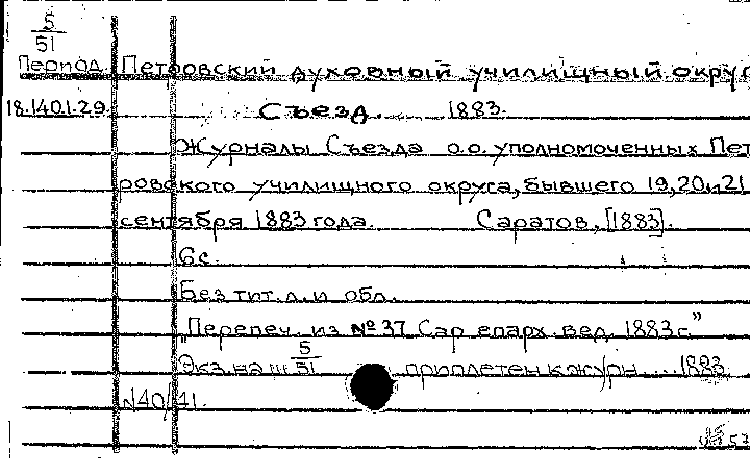 5
51
Период. Петровский духовный училищный округ
18.140.1.29. Съезд. 1883.
Журналы Съезда о.о. уполномоченных Пет
ровского училищного округа, бывшего 19, 20 и 21
сентября 1883 года. Саратов, [1883].
6с.
Без тит. л. и обл.
"Перепеч. из № 37 Сар. епарх. вед. 1883 г."
Экз. на ш. 5/51 приплетен к журн. ... 1883
N40/41.